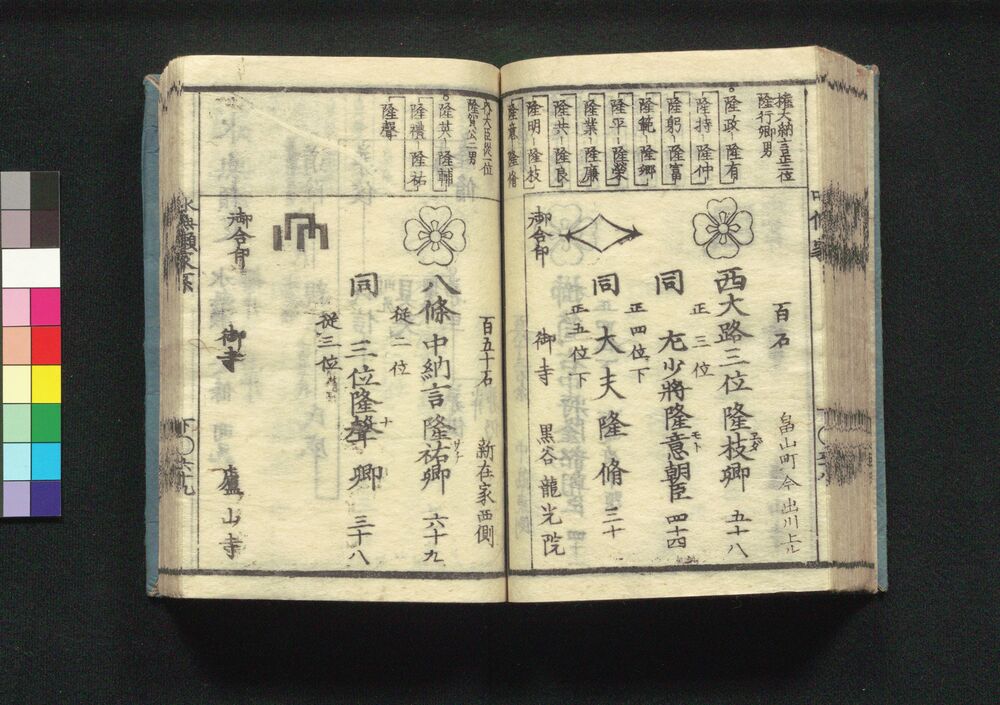 権大納言正二位
隆行卿男
隆政 隆有
隆持 隆仲
隆躬 隆富
隆範 隆郷
隆平 隆榮
隆業 隆廉
隆共 隆良
隆明 隆枝
隆意 隆脩
百石 畠山町今出川上ル
西大路三位隆枝卿 五十八
エダ
正三位
同 左少将隆意朝臣 四十四
モト
正四位下
同 大夫隆脩 三十
正五位下
御合印 御寺 黒谷龍光院
内大臣從一位
隆賀公二男
隆英 隆輔
隆禮 隆祐
隆聲
百五十石 新在家西側
八條中納言隆祐卿 六十九
サチ
從二位
同 三位隆聲卿 三十八
ナ
從三位
御合印 御寺 廬山寺
水無瀬家系
下〇六十九